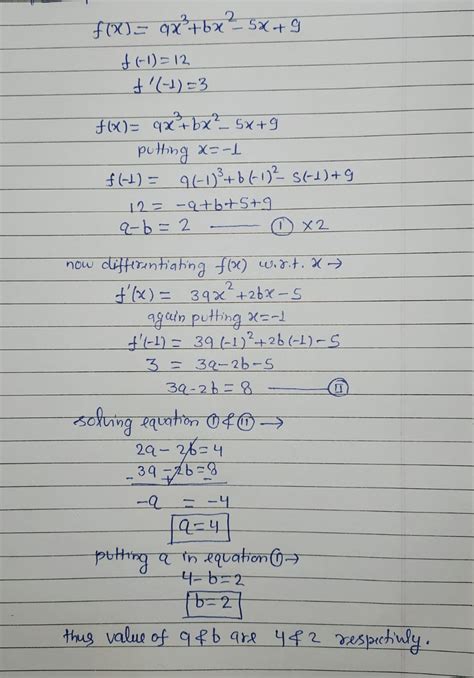 f(x) = ax³+bx²-5x+9
f(-1)=12
f'(-1)=3
f(x)= ax³+bx²-5x+9
putting x=-1
f(-1) = a(-1)³+b(-1)²-5(-1)+9
12 = -a+b+5+9
a-b = 2 —— Ⓘ ×2
now differentiating f(x) w.r.t. x →
f'(x) = 3ax²+2bx-5
again putting x=-1
f'(-1) = 3a(-1)²+2b(-1)-5
3 = 3a-2b-5
3a-2b = 8 —— Ⓘ Ⓘ
solving equation Ⓘ & ⒾⒾ →
2a-2b=4
3a-2b=8
- + -
-a = -4
a=4
putting a in equation Ⓘ→
4-b=2
b=2
thus value of a & b are 4 & 2 respectivly.